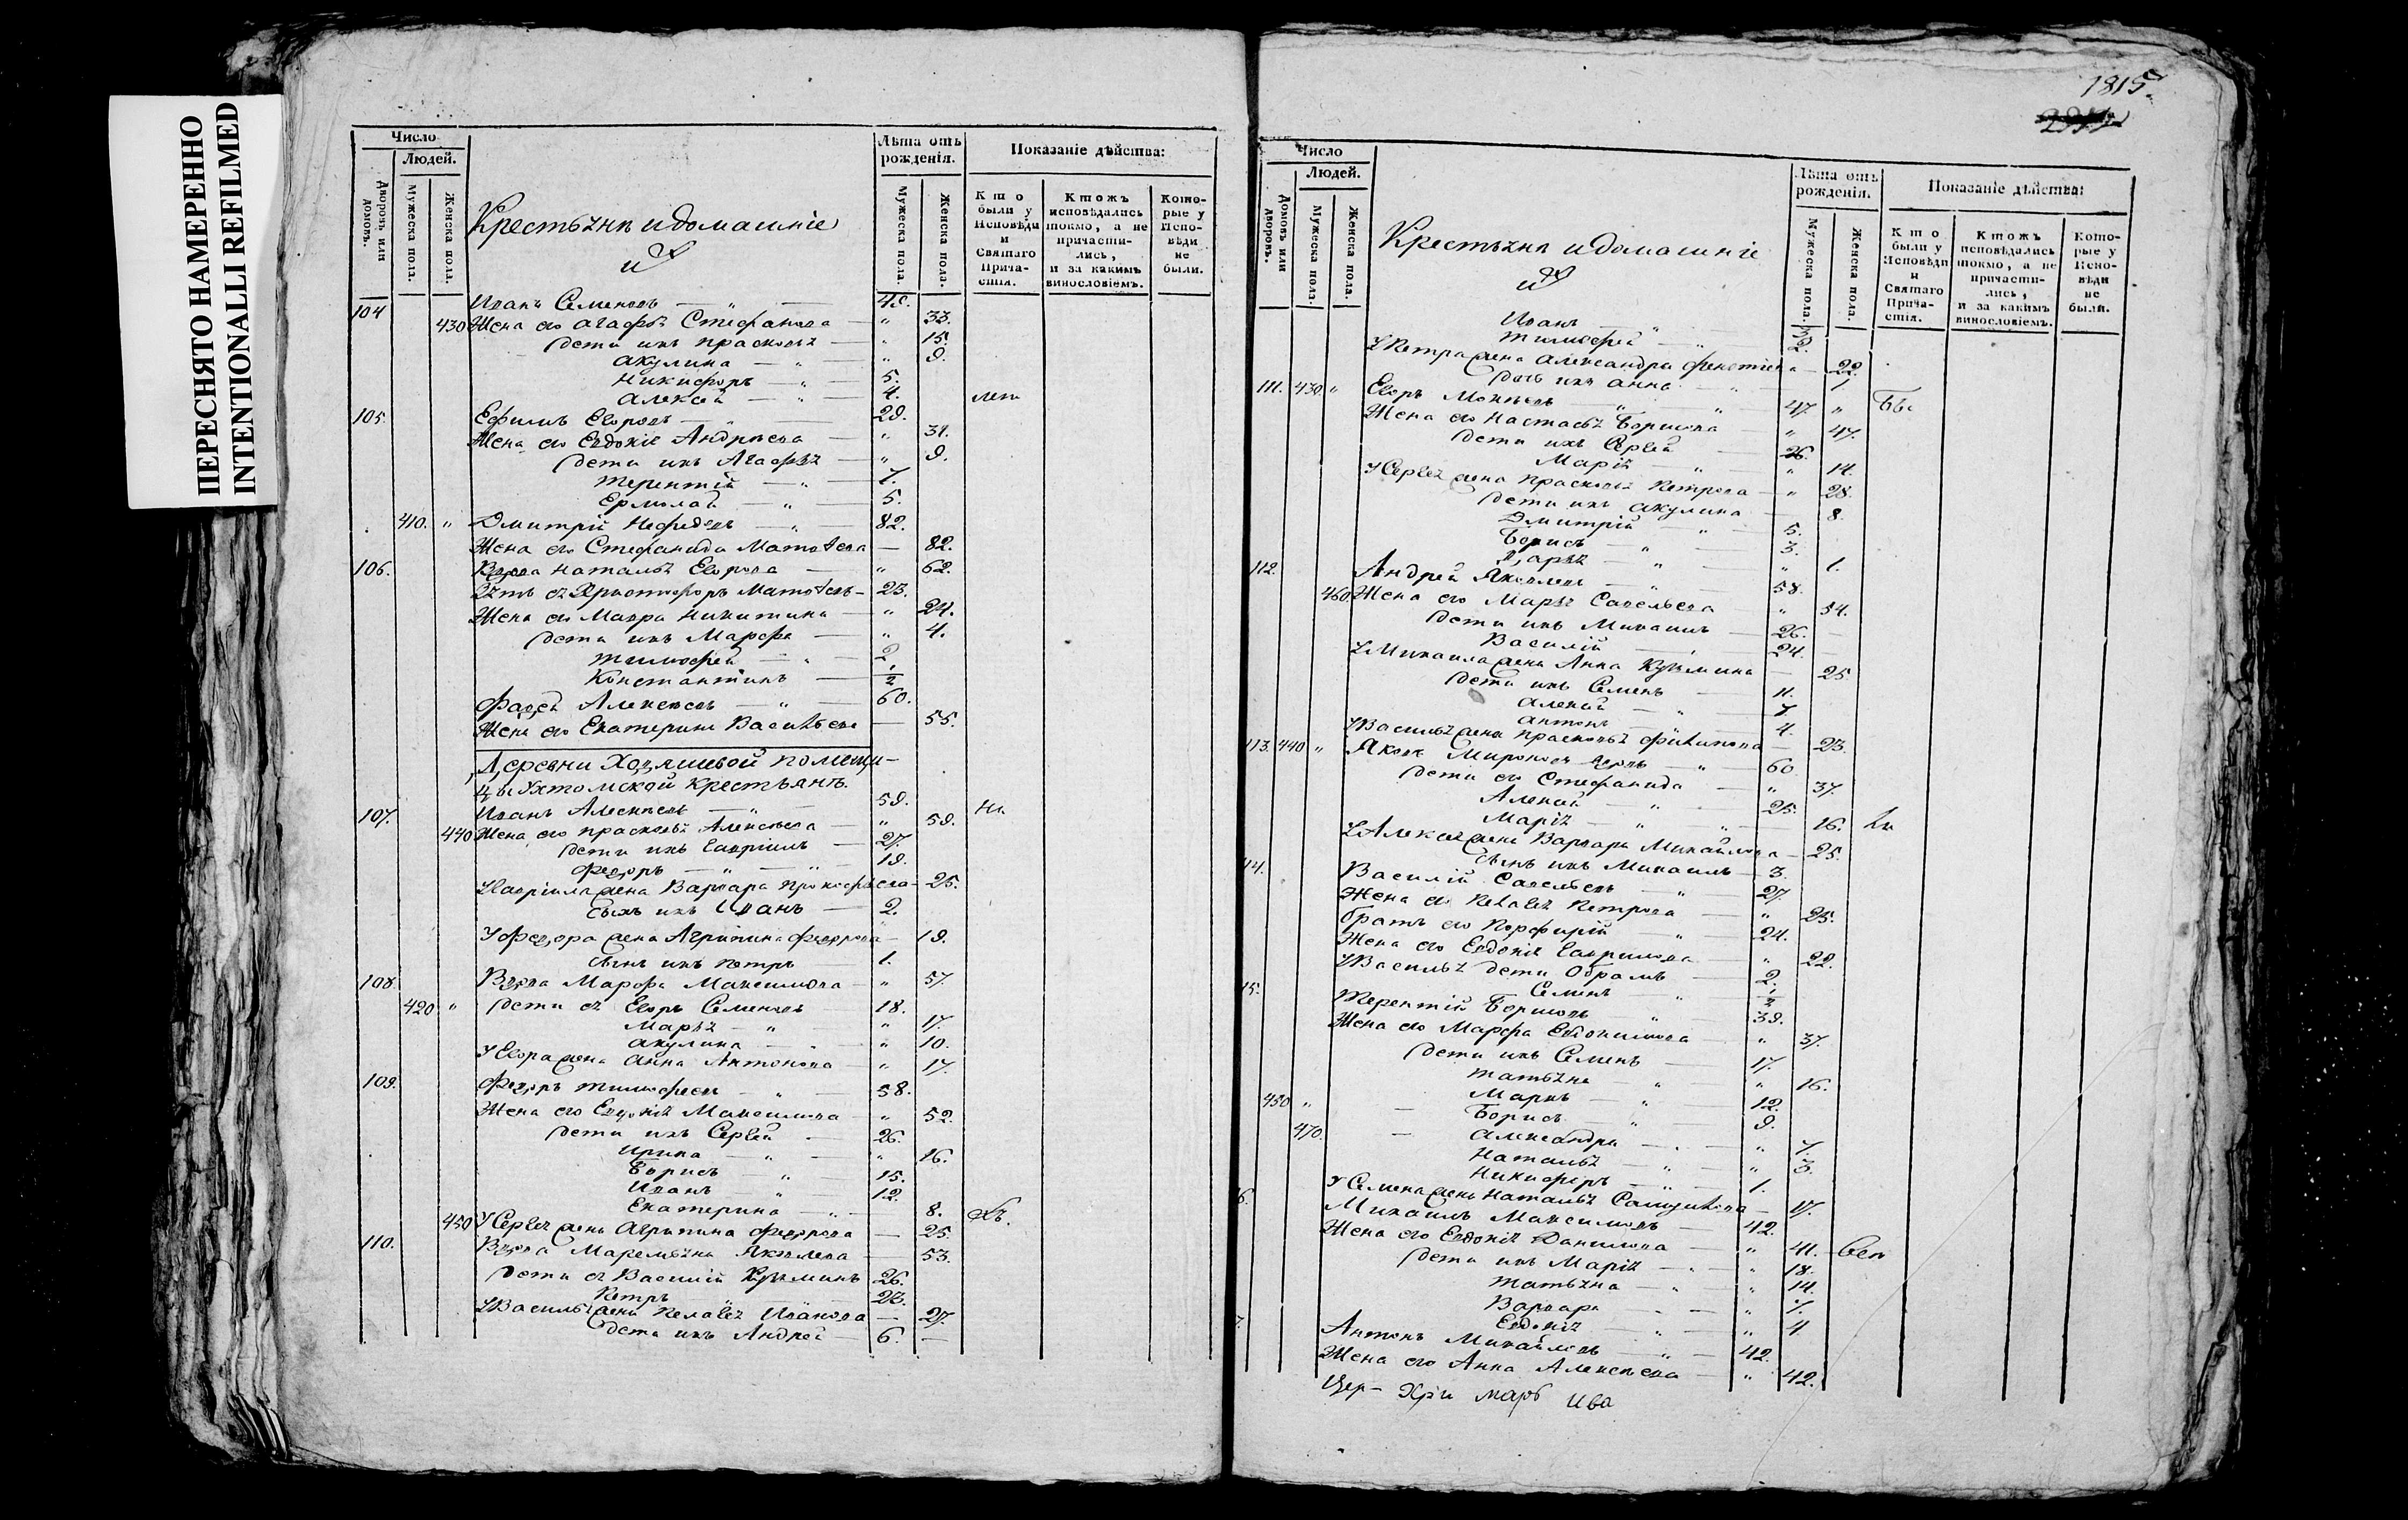 ПЕРЕСНЯТО НАМЕРЕННО
INTENTIONALLI REFILMED
Число
Людей.
Дворовъ или домовъ.
Мужеска пола.
Женска пола.
Крестьяне и домашніе
ихъ
Лѣта отъ рожденія.
Мужеска пола.
Женска пола.
Показаніе дѣйства:
Кто были у Исповѣди и Святаго Причастія.
Ктожъ исповѣдались токмо, а не причастились, и за какимъ винословіемъ.
Которые у Исповѣди не были.
104 Иванъ Семеновъ 48.
430 Жена его Агафья Стефанова 33.
Дети ихъ Прасковья 15.
Акулина 9.
Никифоръ 5.
Алексей 4.
105. Ефимъ Егоровъ 29.
Жена его Евдокія Андреева 31.
Дети ихъ Агафья 9.
Терентій 7.
Ермолай 5.
410. Дмитрій Нефедовъ 82.
Жена его Стефанида Матвѣева 82.
106. Вдова Наталья Егорова 62.
Зять ея Христофоръ Матвѣевъ 23.
Жена его Мавра Никитина 24.
Дети ихъ Марфа 4.
Тимофей 2
Константинъ 1/2
Фадей Алексеевъ 60.
Жена его Екатерина Васильева 55.
Деревни Ходяшевой помещи-
цы Ухтомской крестьянъ.
107. Иванъ Алексеевъ 59.
440 Жена его Прасковья Алексеева 59.
Дети ихъ Гавріилъ 27.
Федоръ 19.
У Гавріила жена Варвара Прокофьева 25.
Сынъ ихъ Иванъ 2.
У Федора жена Агрипина Федорова 19.
Сынъ ихъ Петръ 1.
108. Вдова Марфа Максимова 57.
420 Дети ея Егоръ Семеновъ 18.
Марья 17.
Акулина 10.
У Егора жена Анна Антонова 17.
109. Федоръ Тимофеевъ 58.
Жена его Евдокія Максимова 52.
Дети ихъ Сергей 26.
Ирина 16.
Борисъ 15.
Иванъ 12.
Екатерина 8.
450 У Сергея жена Агрипина Федорова 25.
110. Вдова Маремьяна Яковлева 53.
Дети ея Василій Кузминъ 26.
Петръ 23.
У Василья жена Пелагея Иванова 27.
Дети ихъ Андрей 6.
1815
Число
Людей.
Домовъ или дворовъ.
Мужеска пола.
Женска пола.
Крестьяне и домашніе
ихъ
Лѣта отъ рожденія.
Мужеска пола.
Женска пола.
Показаніе дѣйства:
Кто были у Исповѣди и Святаго Причастія.
Ктожъ исповѣдались токмо, а не причастились, и за какимъ винословіемъ.
Которые у Исповѣди не были.
Иванъ 3.
Тимофей 2.
У Петра жена Александра 22.
Дочь ихъ Анна 1
111. 430 Егоръ 47.
Жена его Настасья Борисова 47.
Дети ихъ Сергей 26.
Марія 14.
У Сергея жена Прасковья Петрова 28.
Дети ихъ Акулина 8.
Дмитрій 5.
Борисъ 3.
Дарья 1.
112. Андрей Яковлевъ 58.
460 Жена его Марья Савельева 54.
Дети ихъ Михаилъ 26.
Василій 24.
У Михаила жена Анна Кузмина 25.
Дети ихъ Семенъ 11.
Алексей 7.
Антонъ 4.
У Василья жена Прасковья Филипова 23.
113. 440 Яковъ Мироновъ вдовъ 60
Дети его Стефанида 37.
Алексей 25.
Марія 16.
У Алексея жена Варвара Михайлова 25.
Сынъ ихъ Михаилъ 3.
14. Василій Савельевъ 27.
Жена его Пелагея Петрова 25.
Братъ его Порфирій 24.
Жена его Евдокія Гаврилова 22.
У Василья дети Абрамъ 2.
Семенъ 1/2
15. Терентій Борисовъ 39.
Жена его Марфа Евдокимова 37.
Дети ихъ Семенъ 17.
Татьяна 16.
Маркъ 12.
450 Борисъ 9.
470. Александра 7.
Наталья 3.
Никифоръ 1.
У Семена жена Наталья 17.
6. Михаилъ Максимовъ 42.
Жена его Евдокія Данилова 41.
Дети ихъ Марія 18.
Татьяна 14.
Варвара 7.
Евдокія 4
7. Антонъ Михайловъ 42.
Жена его Анна Алексеева 42.
Цер- Хри Марѳ Ива